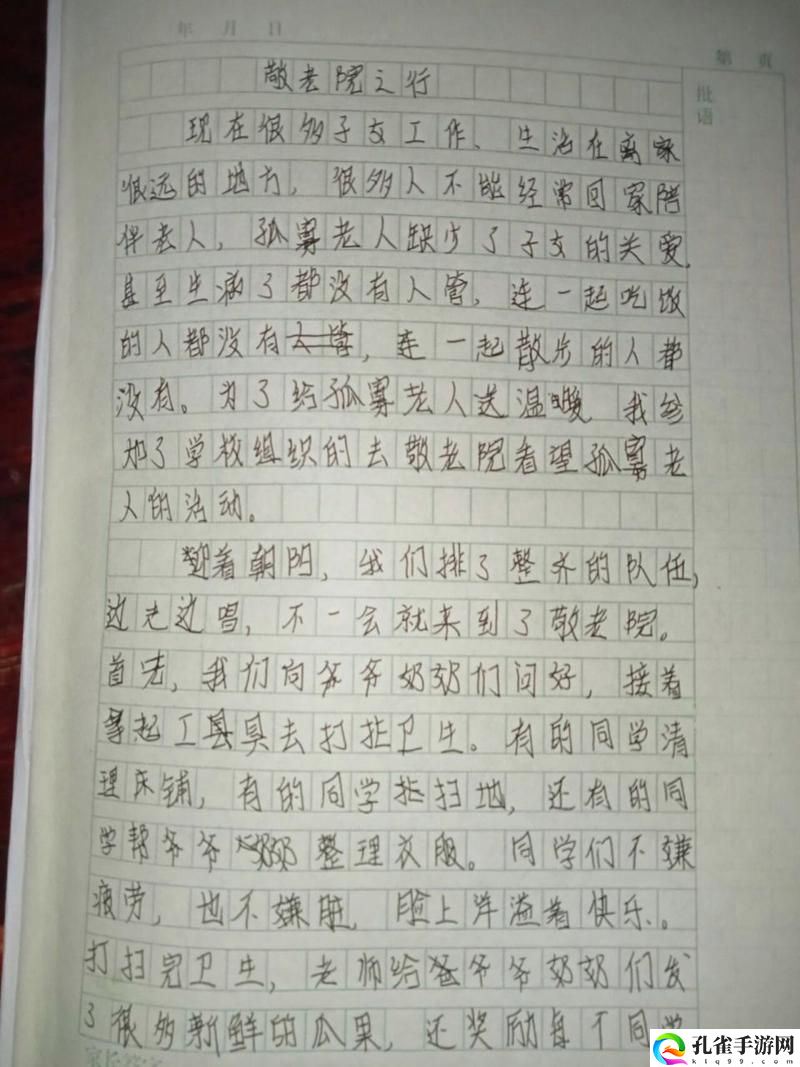 年 月 日
第 页
批语
敬老院之行
现在很多子女工作、生活在离家
很远的地方，很多人不能经常回家陪
伴老人，孤寡老人缺少了子女的关爱，
甚至生病了都没有人管，连一起吃饭
的人都没有人管，连一起散步的人都
没有。为了给孤寡老人送温暖 我参
加了学校组织的去敬老院看望孤寡老
人的活动。
迎着朝阳，我们排了整齐的队伍，
边走边唱，不一会就来到了敬老院。
首先，我们向爷爷奶奶们问好，接着
拿起工具具去打扫卫生。有的同学清
理床铺，有的同学拖扫地，还有的同
学帮爷爷奶奶整理衣服。同学们不嫌
疲劳，也不嫌脏，脸上洋溢着快乐。
打扫完卫生，老师给爷爷爷奶奶们发
了很多新鲜的瓜果，还奖励每个同学
家长签字
孔雀手游网
ktq99.com